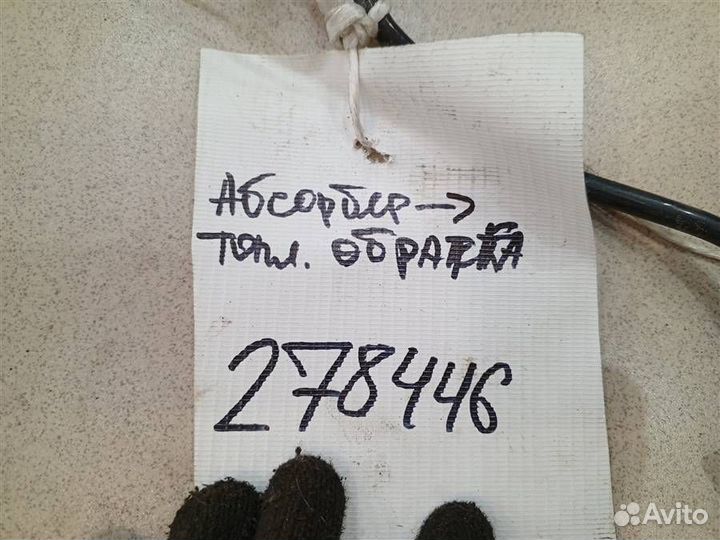 Абсорбер→
топл. ОБРАТКА
278446
Avito